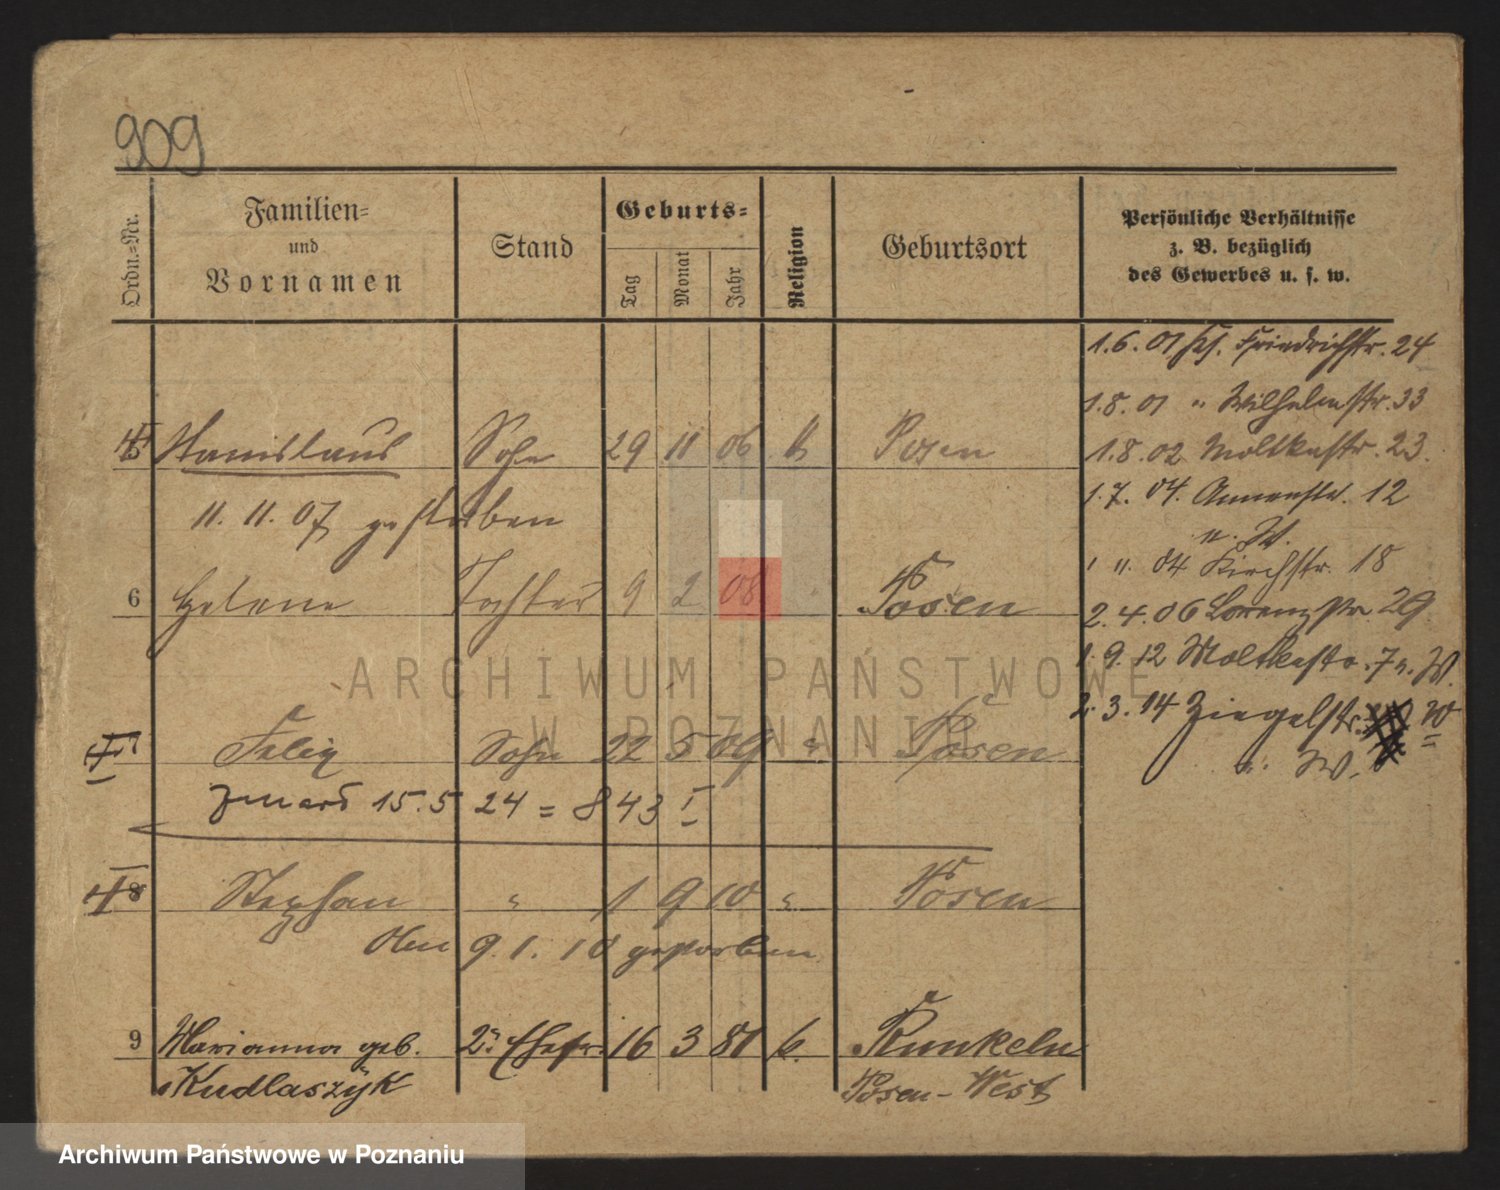 909
Ordn.-Nr.
Familien-
und
Vornamen
Stand
Geburts-
Tag
Monat
Jahr
Religion
Geburtsort
Persönliche Verhältnisse
z. B. bezüglich
des Gewerbes u. s. w.
1.6.01 Friedrichstr. 24
1.8.01 " Wilhelmstr. 33
1.8.02 Moltkestr. 23.
1.7.04. Annenstr. 12
u. W.
04 Kirchstr. 18
2.4.06 Lorenzstr. 29.
1.9.12 Moltkestr. 7 u. W.
2.3.14 Ziegelstr. 10
u. W.
5 Stanislaus Sohn 29 11 06 k Posen
11. 11. 07 gestorben
6 Helene Tochter 9 2 08 Posen
7 Felix Sohn 22 5 09 " Posen
15.5 24 = 843 I
8 Stephan " 1 9 10 " Posen
9. 1. 10 gestorben
9 Marianna geb. 2te Ehefr. 16 3 81 k. Runkeln
Kudlaszÿk Posen-West
ARCHIWUM PAŃSTWOWE
W POZNANIU
Archiwum Państwowe w Poznaniu